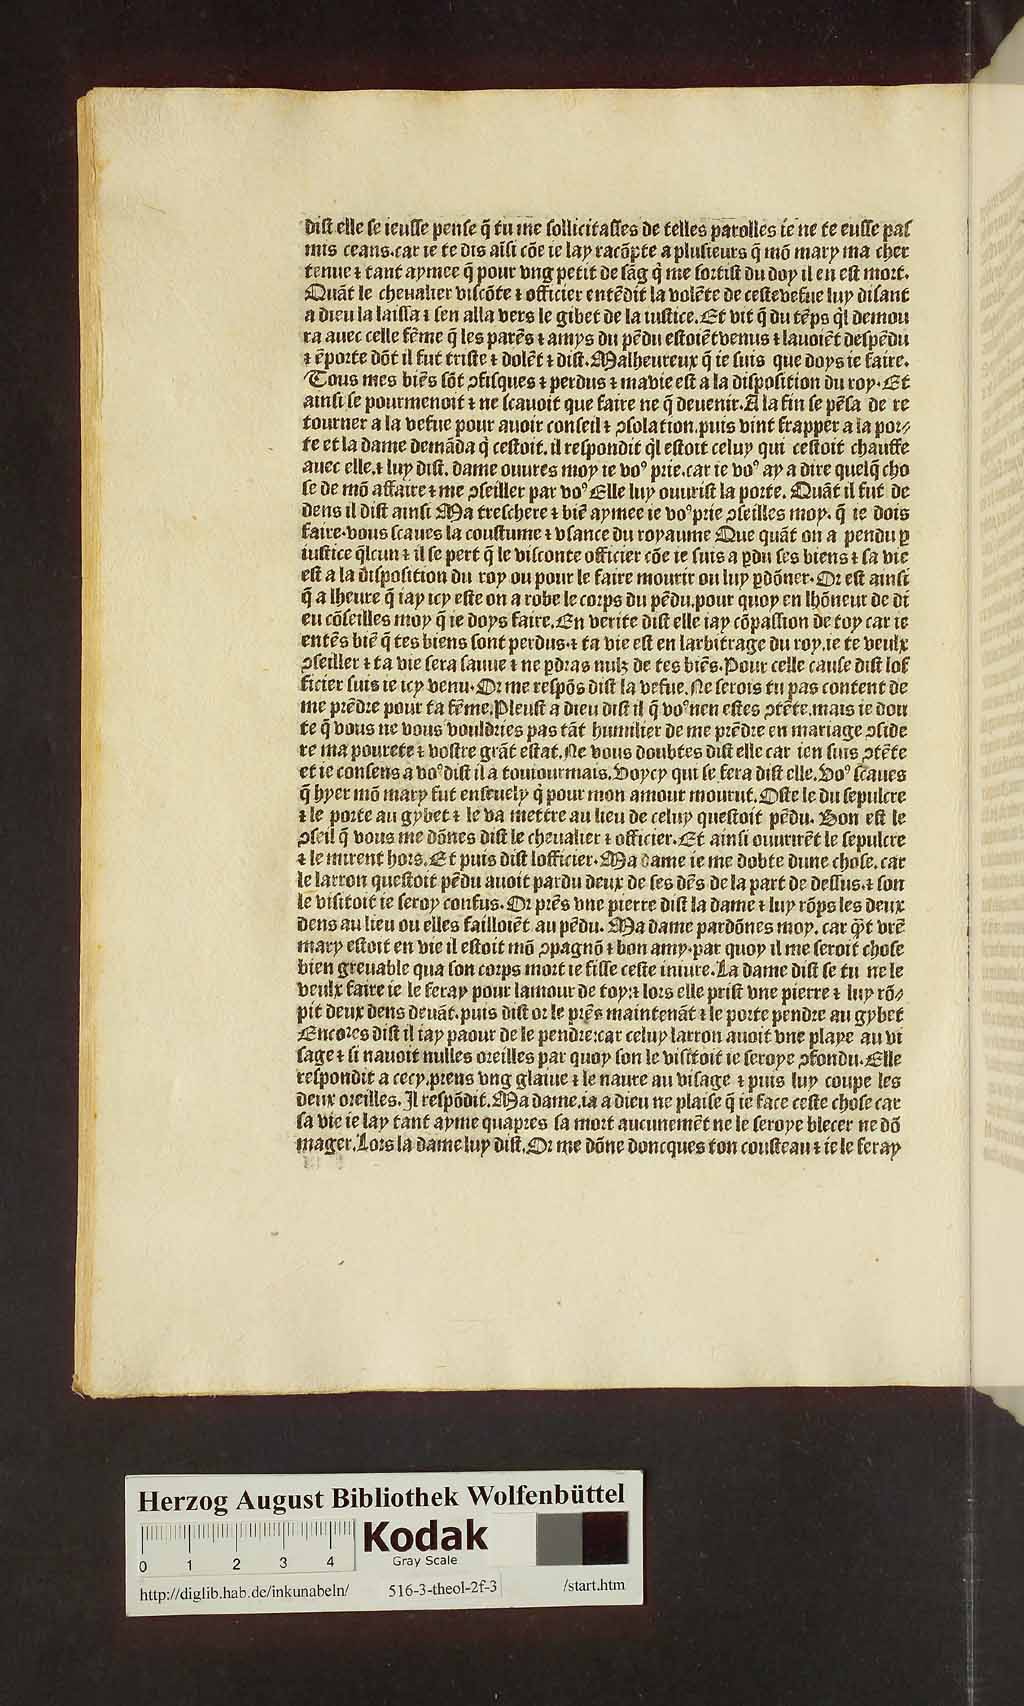 dist elle se ieusse pense q̃ tu me sollicitasses de telles parolles ie ne te eusse pas
mis ceans.car ie te dis aĩsi cõe ie lay racõpte a plusieurs q̃ mõ mary ma cher
tenue ⁊ tant aymee q̃ pour vng petit de sãg q̃ me sortist du doy il en est mort.
Quãt le cheualier viscõte ⁊ officier entẽdit la volẽte de ceste vefue luy disant
a dieu la laissa ⁊ sen alla vers le gibet de la iustice. Et vit q̃ du tẽps ql̃ demou
ra auec celle fẽme q̃ les parẽs ⁊ amys du pẽdu estoiẽt venus ⁊ lauoiẽt despẽdu
⁊ ẽporte dõt il fut triste ⁊ dolẽt ⁊ dist. Malheureux q̃ ie suis que doys ie faire.
Tous mes biẽs sõt ꝯfisques ⁊ perdus ⁊ ma vie est a la disposition du roy. Et
ainsi se pourmenoit ⁊ ne scauoit que faire ne q̃ deuenir. A la fin se pẽsa de re
tourner a la vefue pour auoir conseil ⁊ ꝯsolation.puis vint frapper a la por⸗
te et la dame demãda q̃ cestoit. il respondit ql̃ estoit celuy qui cestoit chauffe
auec elle.⁊ luy dist. dame ouures moy ie voꝰ prie.car ie voꝰ ay a dire quelq̃ cho
se de mõ affaire ⁊ me ꝯseiller par voꝰ Elle luy ouurist la porte. Quãt il fut de
dens il dist ainsi Ma treschere ⁊ biẽ aymee ie voꝰ prie ꝯseilles moy. q̃ ie dois
faire.vous scaues la coustume ⁊ vsance du royaume Que quãt on a pendu ꝑ
iustice ql̃cun ⁊ il se pert q̃ le visconte officier cõe ie suis a ꝑdu ses biens ⁊ sa vie
est a la disposition du roy ou pour le faire mourir ou luy ꝑdõner. Or est ainsi
q̃ a lheure q̃ iay icy este on a robe le corps du pẽdu.pour quoy en lhõneur de di
eu cõseilles moy q̃ ie doys faire. En verite dist elle iay cõpassion de toy car ie
entẽs biẽ q̃ tes biens sont perdus.⁊ ta vie est en larbitrage du roy.ie te veulx
ꝯseiller ⁊ ta vie sera sauue ⁊ ne ꝑdras nulz de tes biẽs. Pour celle cause dist lof
ficier suis ie icy venu. Or me respõs dist la vefue. Ne serois tu pas content de
me prẽdre pour ta fẽme. Pleust a dieu dist il q̃ voꝰ nen estes ꝯtẽte.mais ie dou
te q̃ vous ne vous vouldries pas tãt humilier de me prẽdre en mariage ꝯside
re ma pourete ⁊ vostre grãt estat. Ne vous doubtes dist elle car ien suis ꝯtẽte
et ie consens a voꝰ dist il a toutourmais. Voycy qui se fera dist elle. Voꝰ scaues
q̃ hyer mõ mary fut enseuely q̃ pour mon amour mourut. Oste le du sepulcre
⁊ le porte au gybet ⁊ le va mettre au lieu de celuy questoit pẽdu. Bon est le
ꝯseil q̃ vous me dõnes dist le cheualier ⁊ officier. Et ainsi ouurirẽt le sepulcre
⁊ le mirent hors. Et puis dist lofficier. Ma dame ie me dobte dune chose. car
le larron questoit pẽdu auoit pardu deux de ses dẽs de la part de dessus.⁊ son
le visitoit ie seroy confus. Or prẽs vne pierre dist la dame ⁊ luy rõps les deux
dens au lieu ou elles failloiẽt au pẽdu. Ma dame pardõnes moy. car q̃t vrẽ
mary estoit en vie il estoit mõ ꝯpagnõ ⁊ bon amy.par quoy il me seroit chose
bien greuable qua son corps mort ie fisse ceste iniure. La dame dist se tu ne le
veulx faire ie le feray pour lamour de toy:⁊ lors elle prist vne pierre ⁊ luy rõ⸗
pit deux dens deuãt.puis dist or le prẽs maintenãt ⁊ le porte pendre au gybet
Encores dist il iay paour de le pendre:car celuy larron auoit vne playe au vi
sage ⁊ si nauoit nulles oreilles par quoy son le visitoit ie seroye ꝯfondu. Elle
respondit a cecy.prens vng glaiue ⁊ le naure au visage ⁊ puis luy coupe les
deux oreilles. Il respõdit. Ma dame.ia a dieu ne plaise q̃ ie face ceste chose car
sa vie ie lay tant ayme quapres sa mort aucunemẽt ne le seroye blecer ne dõ
mager. Lors la dame luy dist. Or me dõne doncques ton cousteau ⁊ ie le feray
Herzog August Bibliothek Wolfenbüttel
0 1 2 3 4
Kodak
Gray Scale
http://diglib.hab.de/inkunabeln/ 516-3-theol-2f-3 /start.htm